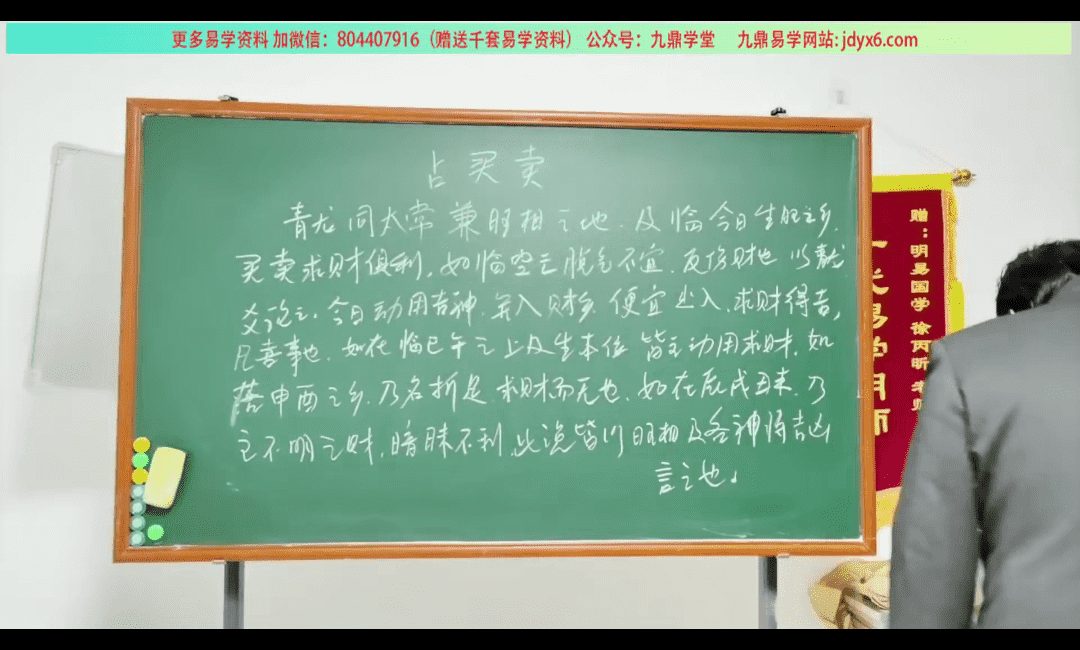 更多易学资料 加微信：804407916（赠送千套易学资料） 公众号：九鼎学堂 九鼎易学网站: jdyx6.com
占买卖
青龙同太常兼旺相之地．及临今日生旺之乡．
买卖求财俱利．如临空亡脱气不宜．反伤财也 以青龙
爻论之．今日动用吉神．并入财乡．便宜出入．求财得吉，
凡喜事也．如在临巳午之上及生本位 皆主动用求财．如
落申酉之乡．乃名折足 求财而无也．如在辰戌丑未．乃
主不明之财，暗昧不利．此说皆以旺相及各神将吉凶
言之也。
赠：明易国学 徐丙昕 老师
易学明师